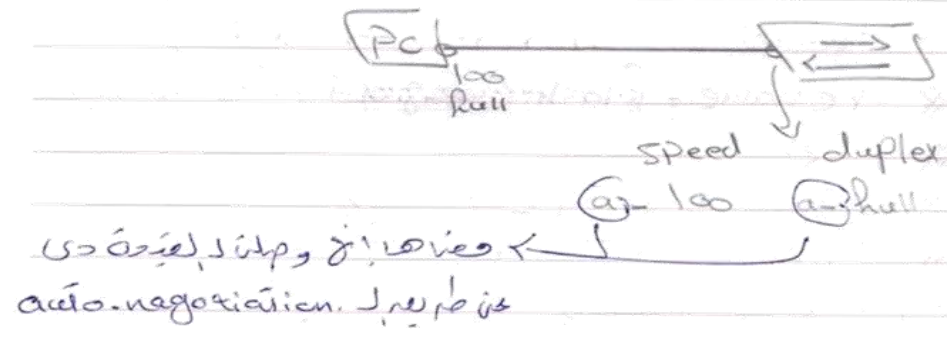 PC
100
full
speed duplex
a-100 a-full
معناها إن وصلت للقيمة دى
عن طريق ال auto-negotiation.